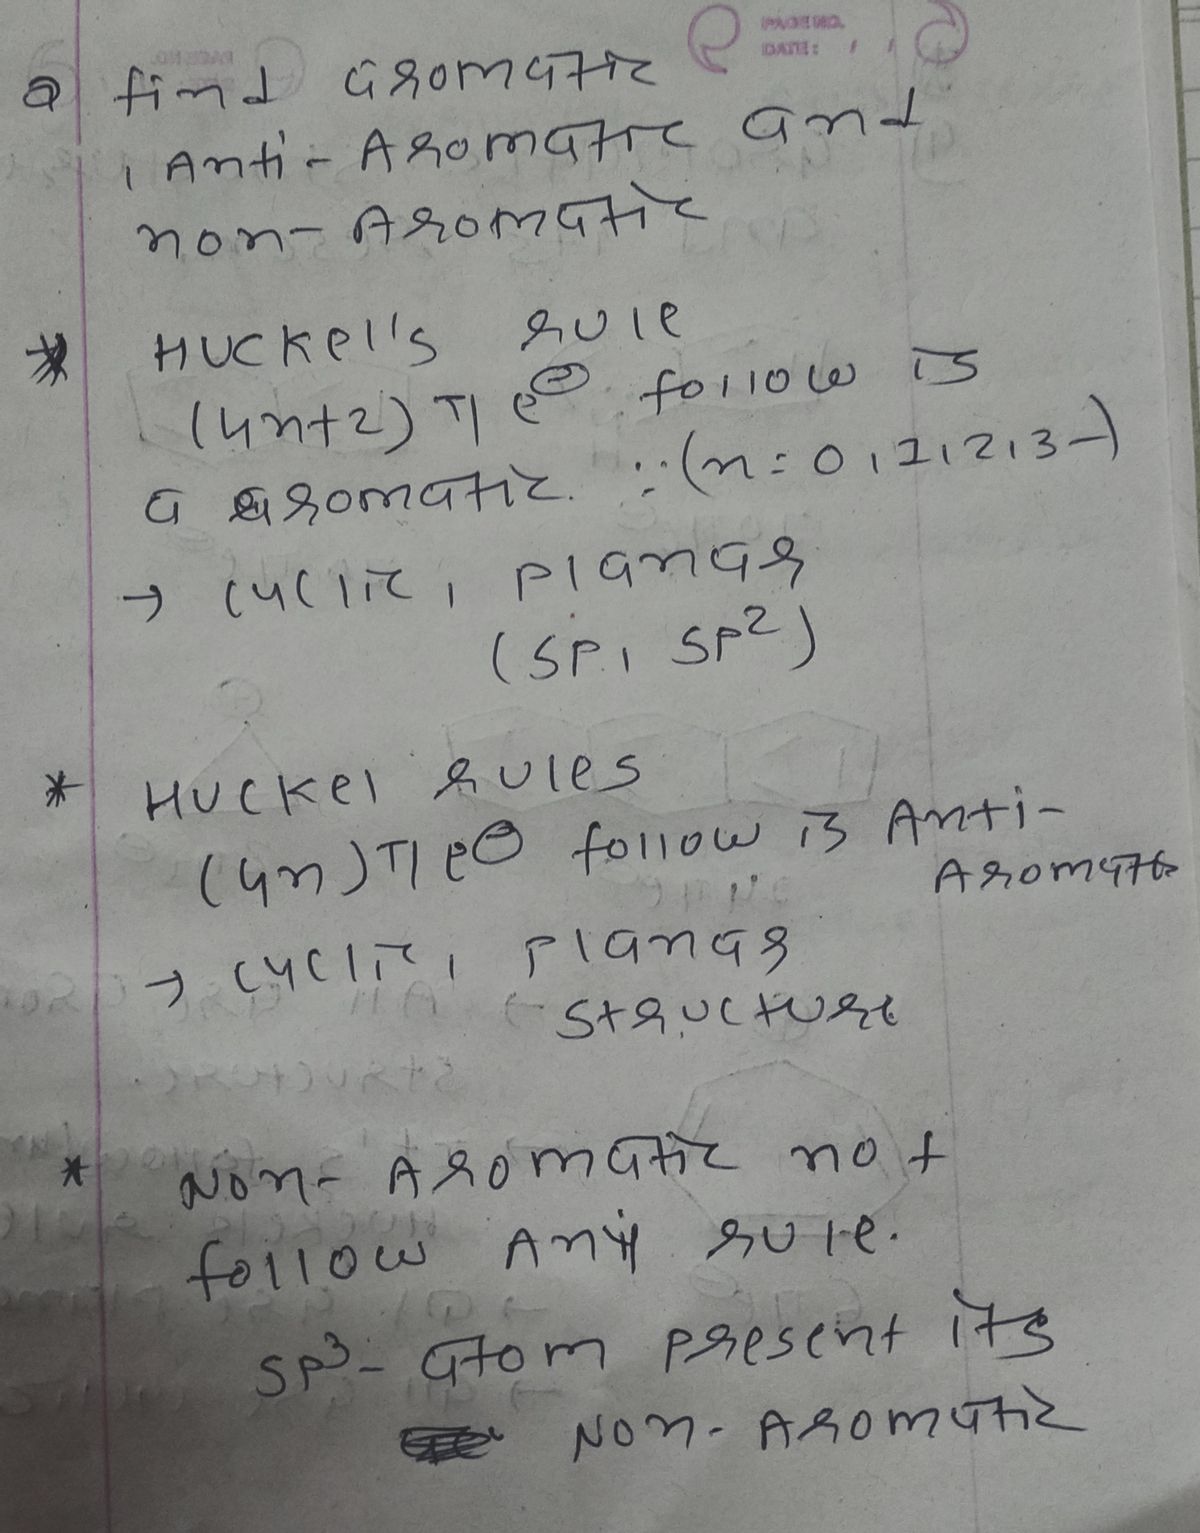 PAGE NO.
DATE:
Q find aromatic
, Anti-Aromatic and
non-Aromatic
* HUCKel's rule
(4n+2) π e⊖ follow is
a aromatic. ∵ (n = 0,1,2,3-)
→ cyclic, planar
(SP, SP²)
* HUCKel rules
(4n) π e⊖ follow is Anti-
Aromatic
→ cyclic, planar
structure
* Non-Aromatic not
follow Any rule.
SP³- atom present its
Non-Aromatic